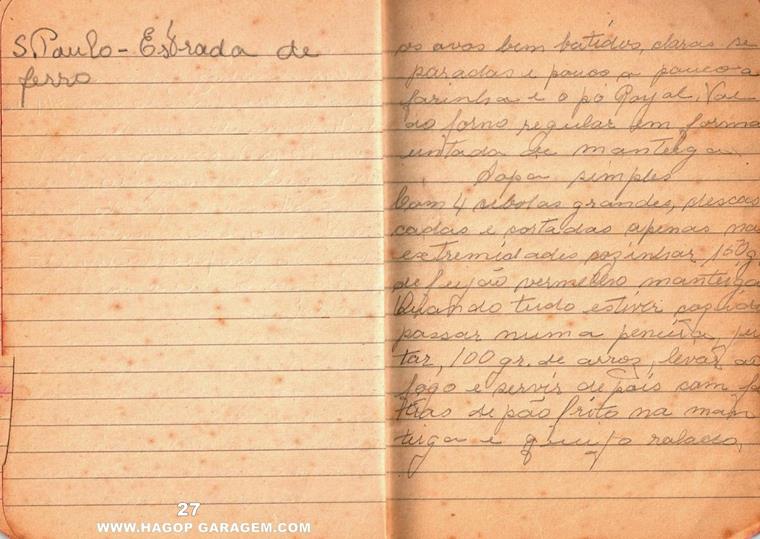 S. Paulo - Estrada de
ferro
os ovos bem batidos, claras se
paradas e pouco a pouco a
farinha e o pó Royal. Vai
ao forno regular em forma
untada de manteiga.
Sopa simples
Com 4 cebolas grandes, descas
cadas e cortadas apenas nas
extremidades cozinhar 150 g
de feijão vermelho manteiga
Quando tudo estiver cozido
passar numa peneira, jun
tar, 100 gr. de arroz, levar ao
fogo e servir depois com fa
tias de pão frito na man
teiga e queijo ralado,
27
WWW.HAGOP GARAGEM.COM